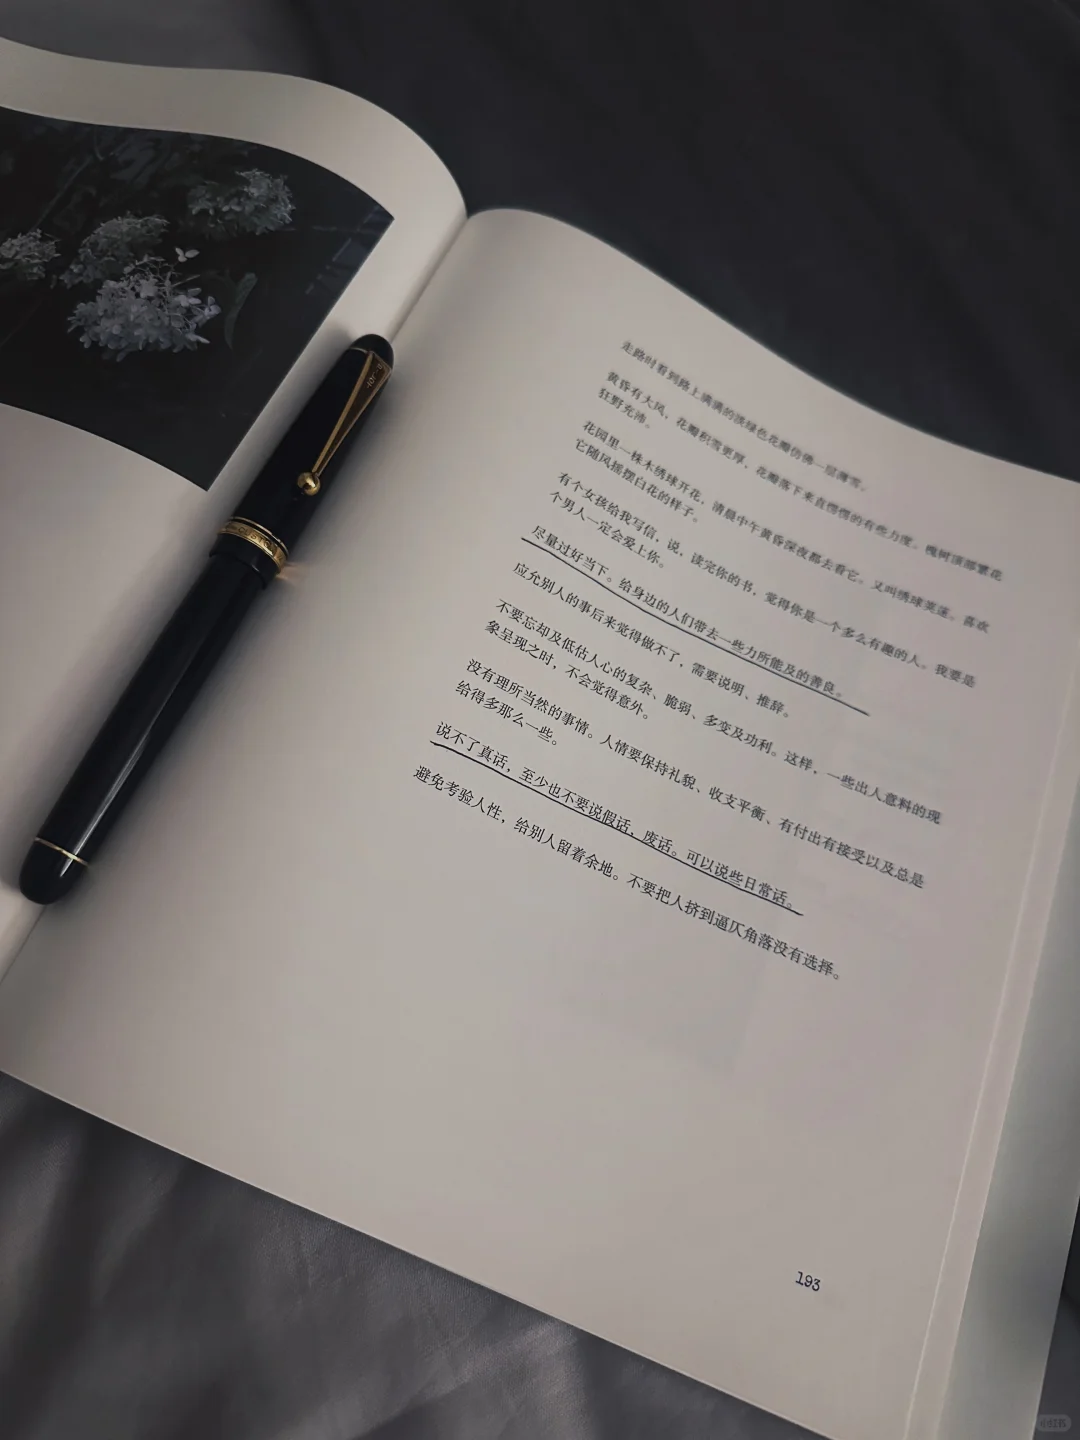 走路时看到路上满满的淡绿色花瓣仿佛一层薄雪。
黄昏有大风，花瓣积雪更厚，花瓣落下来直愣愣的有些力度。槐树顶部繁花
狂野充沛。
花园里一株木绣球开花，清晨中午黄昏深夜都去看它。又叫绣球荚蒾。喜欢
它随风摇摆白花的样子。
有个女孩给我写信，说，读完你的书，觉得你是一个多么有趣的人。我要是
个男人一定会爱上你。
尽量过好当下。给身边的人们带去一些力所能及的善良。
应允别人的事后来觉得做不了，需要说明、推辞。
不要忘却及低估人心的复杂、脆弱、多变及功利。这样，一些出人意料的现
象呈现之时，不会觉得意外。
没有理所当然的事情。人情要保持礼貌、收支平衡、有付出有接受以及总是
给得多那么一些。
说不了真话，至少也不要说假话，废话。可以说些日常话。
避免考验人性，给别人留着余地。不要把人挤到逼仄角落没有选择。
193